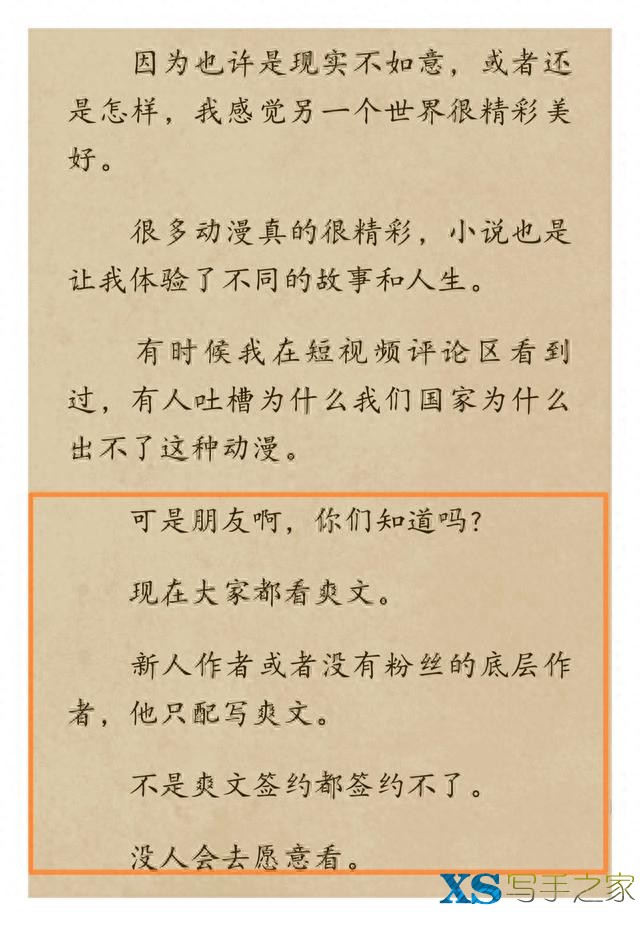 因为也许是现实不如意，或者还
是怎样，我感觉另一个世界很精彩美
好。
很多动漫真的很精彩，小说也是
让我体验了不同的故事和人生。
有时候我在短视频评论区看到
过，有人吐槽为什么我们国家为什么
出不了这种动漫。
可是朋友啊，你们知道吗？
现在大家都看爽文。
新人作者或者没有粉丝的底层作
者，他只配写爽文。
不是爽文签约都签约不了。
没人会去愿意看。
XS写手之家